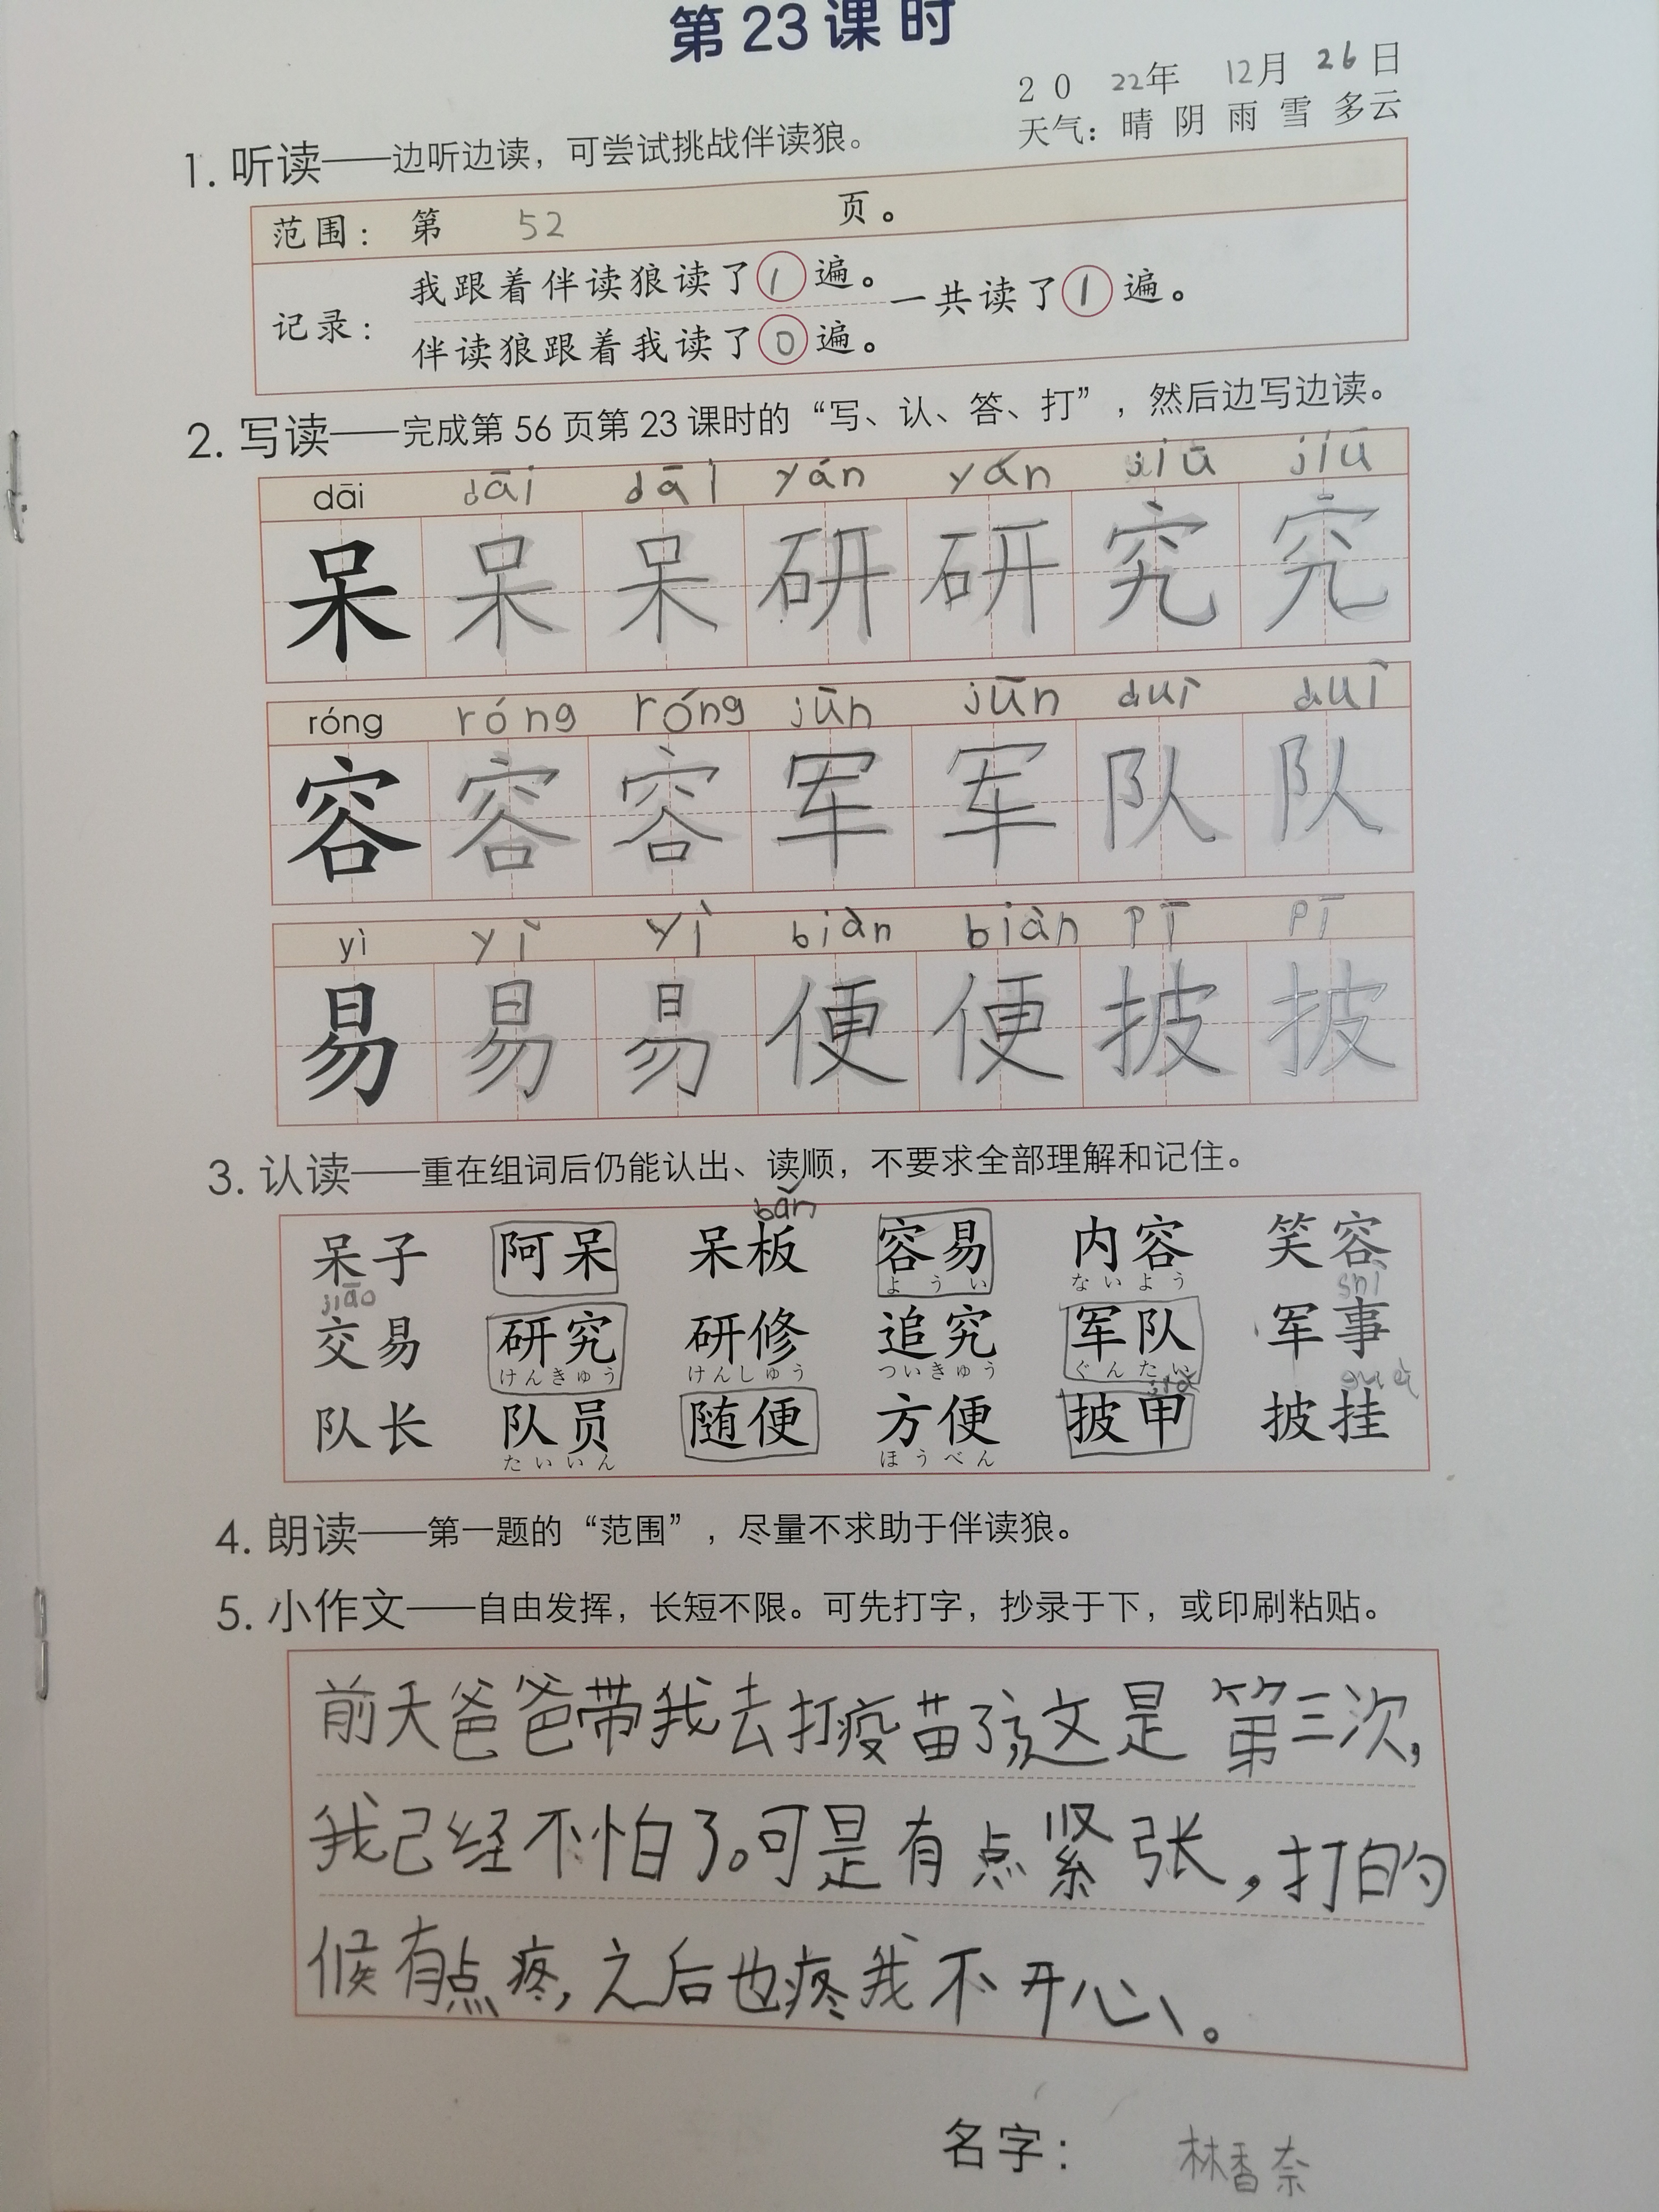 第23课时
20 22年 12月 26日
天气：晴 阴 雨 雪 多云
1. 听读——边听边读，可尝试挑战伴读狼。
范围：第 52 页。
记录：
我跟着伴读狼读了1遍。
伴读狼跟着我读了0遍。
一共读了1遍。
2. 写读——完成第 56 页第 23 课时的“写、认、答、打”，然后边写边读。
dāi dāi dāi yán yán jiū jiū
呆 呆 呆 研 研 究 究
róng róng róng jūn jūn duì duì
容 容 容 军 军 队 队
yì yì yì biàn biàn pī pī
易 易 易 便 便 披 披
3. 认读——重在组词后仍能认出、读顺，不要求全部理解和记住。
bǎn
呆子 阿呆 呆板 容易 内容 笑容
ようい ないよう
jiāo shì
交易 研究 研修 追究 军队 军事
けんきゅう けんしゅう ついきゅう ぐんたい
jiǎ guà
队长 队员 随便 方便 披甲 披挂
たいいん ほうべん
4. 朗读——第一题的“范围”，尽量不求助于伴读狼。
5. 小作文——自由发挥，长短不限。可先打字，抄录于下，或印刷粘贴。
前天爸爸带我去打疫苗了，这是第三次，
我己经不怕了。可是有点紧张，打的
候有点疼，之后也疼我不开心、。
名字： 林香奈